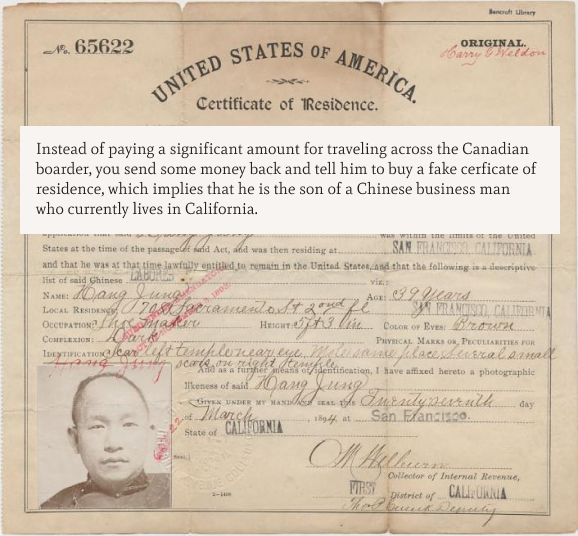 Bancroft Library
No. 65622
ORIGINAL.
Harry G Weldon
UNITED STATES OF AMERICA.
Certificate of Residence.
Instead of paying a significant amount for traveling across the Canadian
boarder, you send some money back and tell him to buy a fake cerficate of
residence, which implies that he is the son of a Chinese business man
who currently lives in California.
was within the limits of the United
States at the time of the passage of said Act, and was then residing at SAN FRANCISCO, CALIFORNIA
and that he was at that time lawfully entitled to remain in the United States, and that the following is a descriptive
list of said Chinese LABORER viz.:
NAME: Hang Jung AGE: 39 Years
LOCAL RESIDENCE: Sacramento St 2ond fl SAN FRANCISCO, CALIFORNIA
OCCUPATION: Shoemaker HEIGHT: 5 ft 3 in COLOR OF EYES: Brown
COMPLEXION: Dark PHYSICAL MARKS OR PECULIARITIES FOR
IDENTIFICATION: Scar left temple near eye, Mole same place, Several small
Hang Jung scars on right temple
And as a further means of identification, I have affixed hereto a photographic
likeness of said Hang Jung
GIVEN UNDER MY HAND AND SEAL this Twenty seventh day
of March, 1894, at San Francisco.
State of CALIFORNIA
[SEAL.]
Collector of Internal Revenue,
FIRST District of CALIFORNIA
2-1406
Deputy